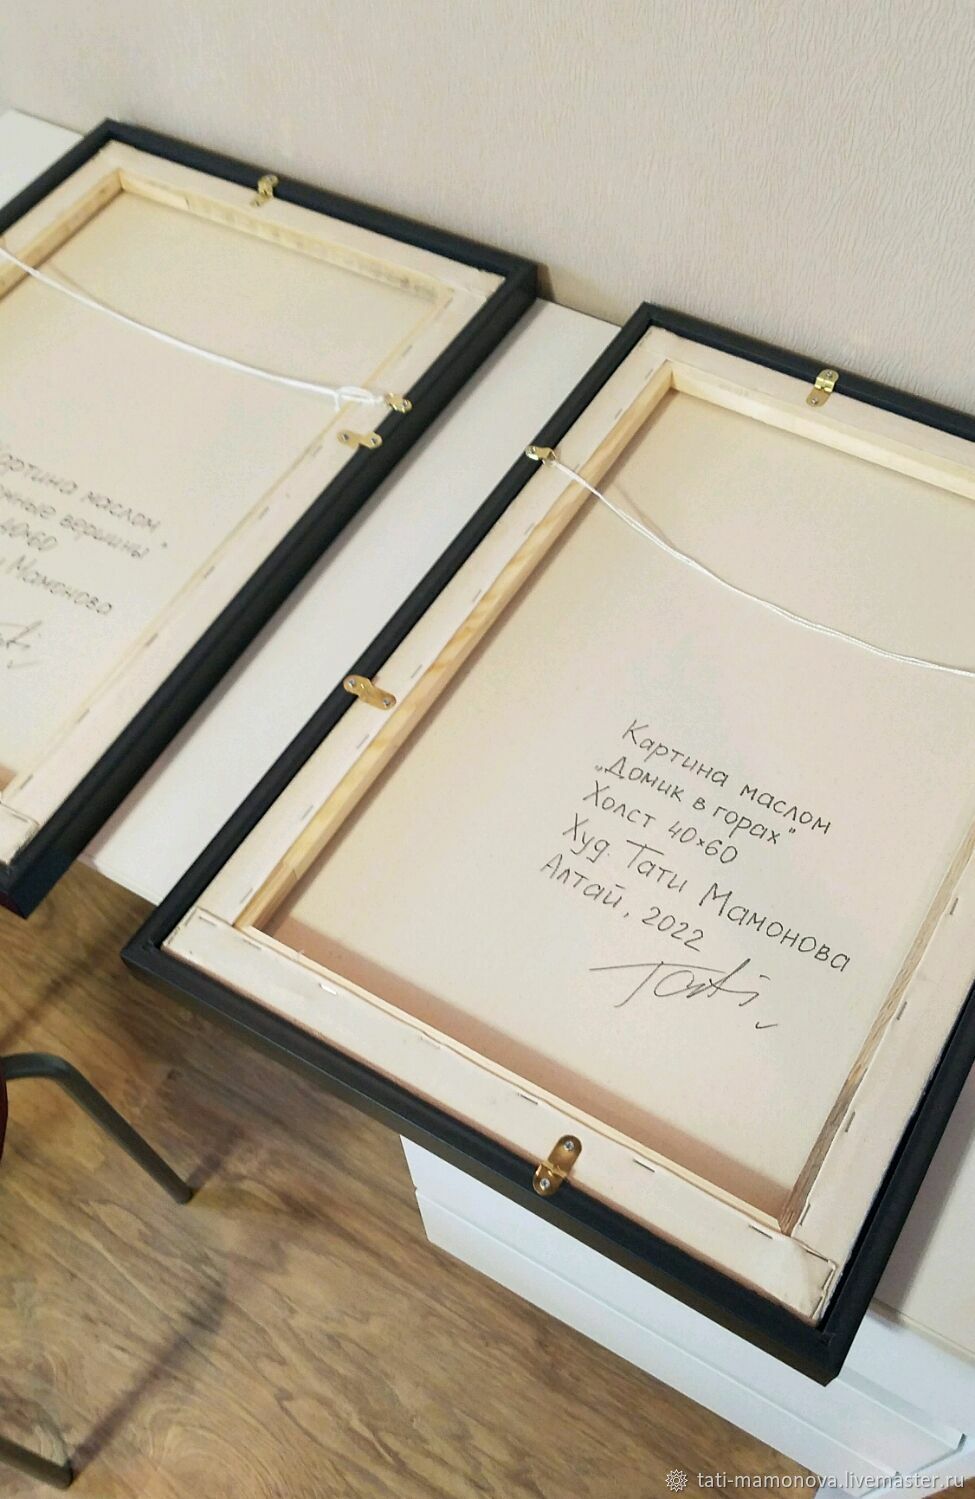 маслом
вершины"
40×60
Мамонова
Картина маслом
„Домик в горах"
Холст 40×60
Худ. Тати Мамонова
Алтай, 2022
Tati
tati-mamonova.livemaster.ru